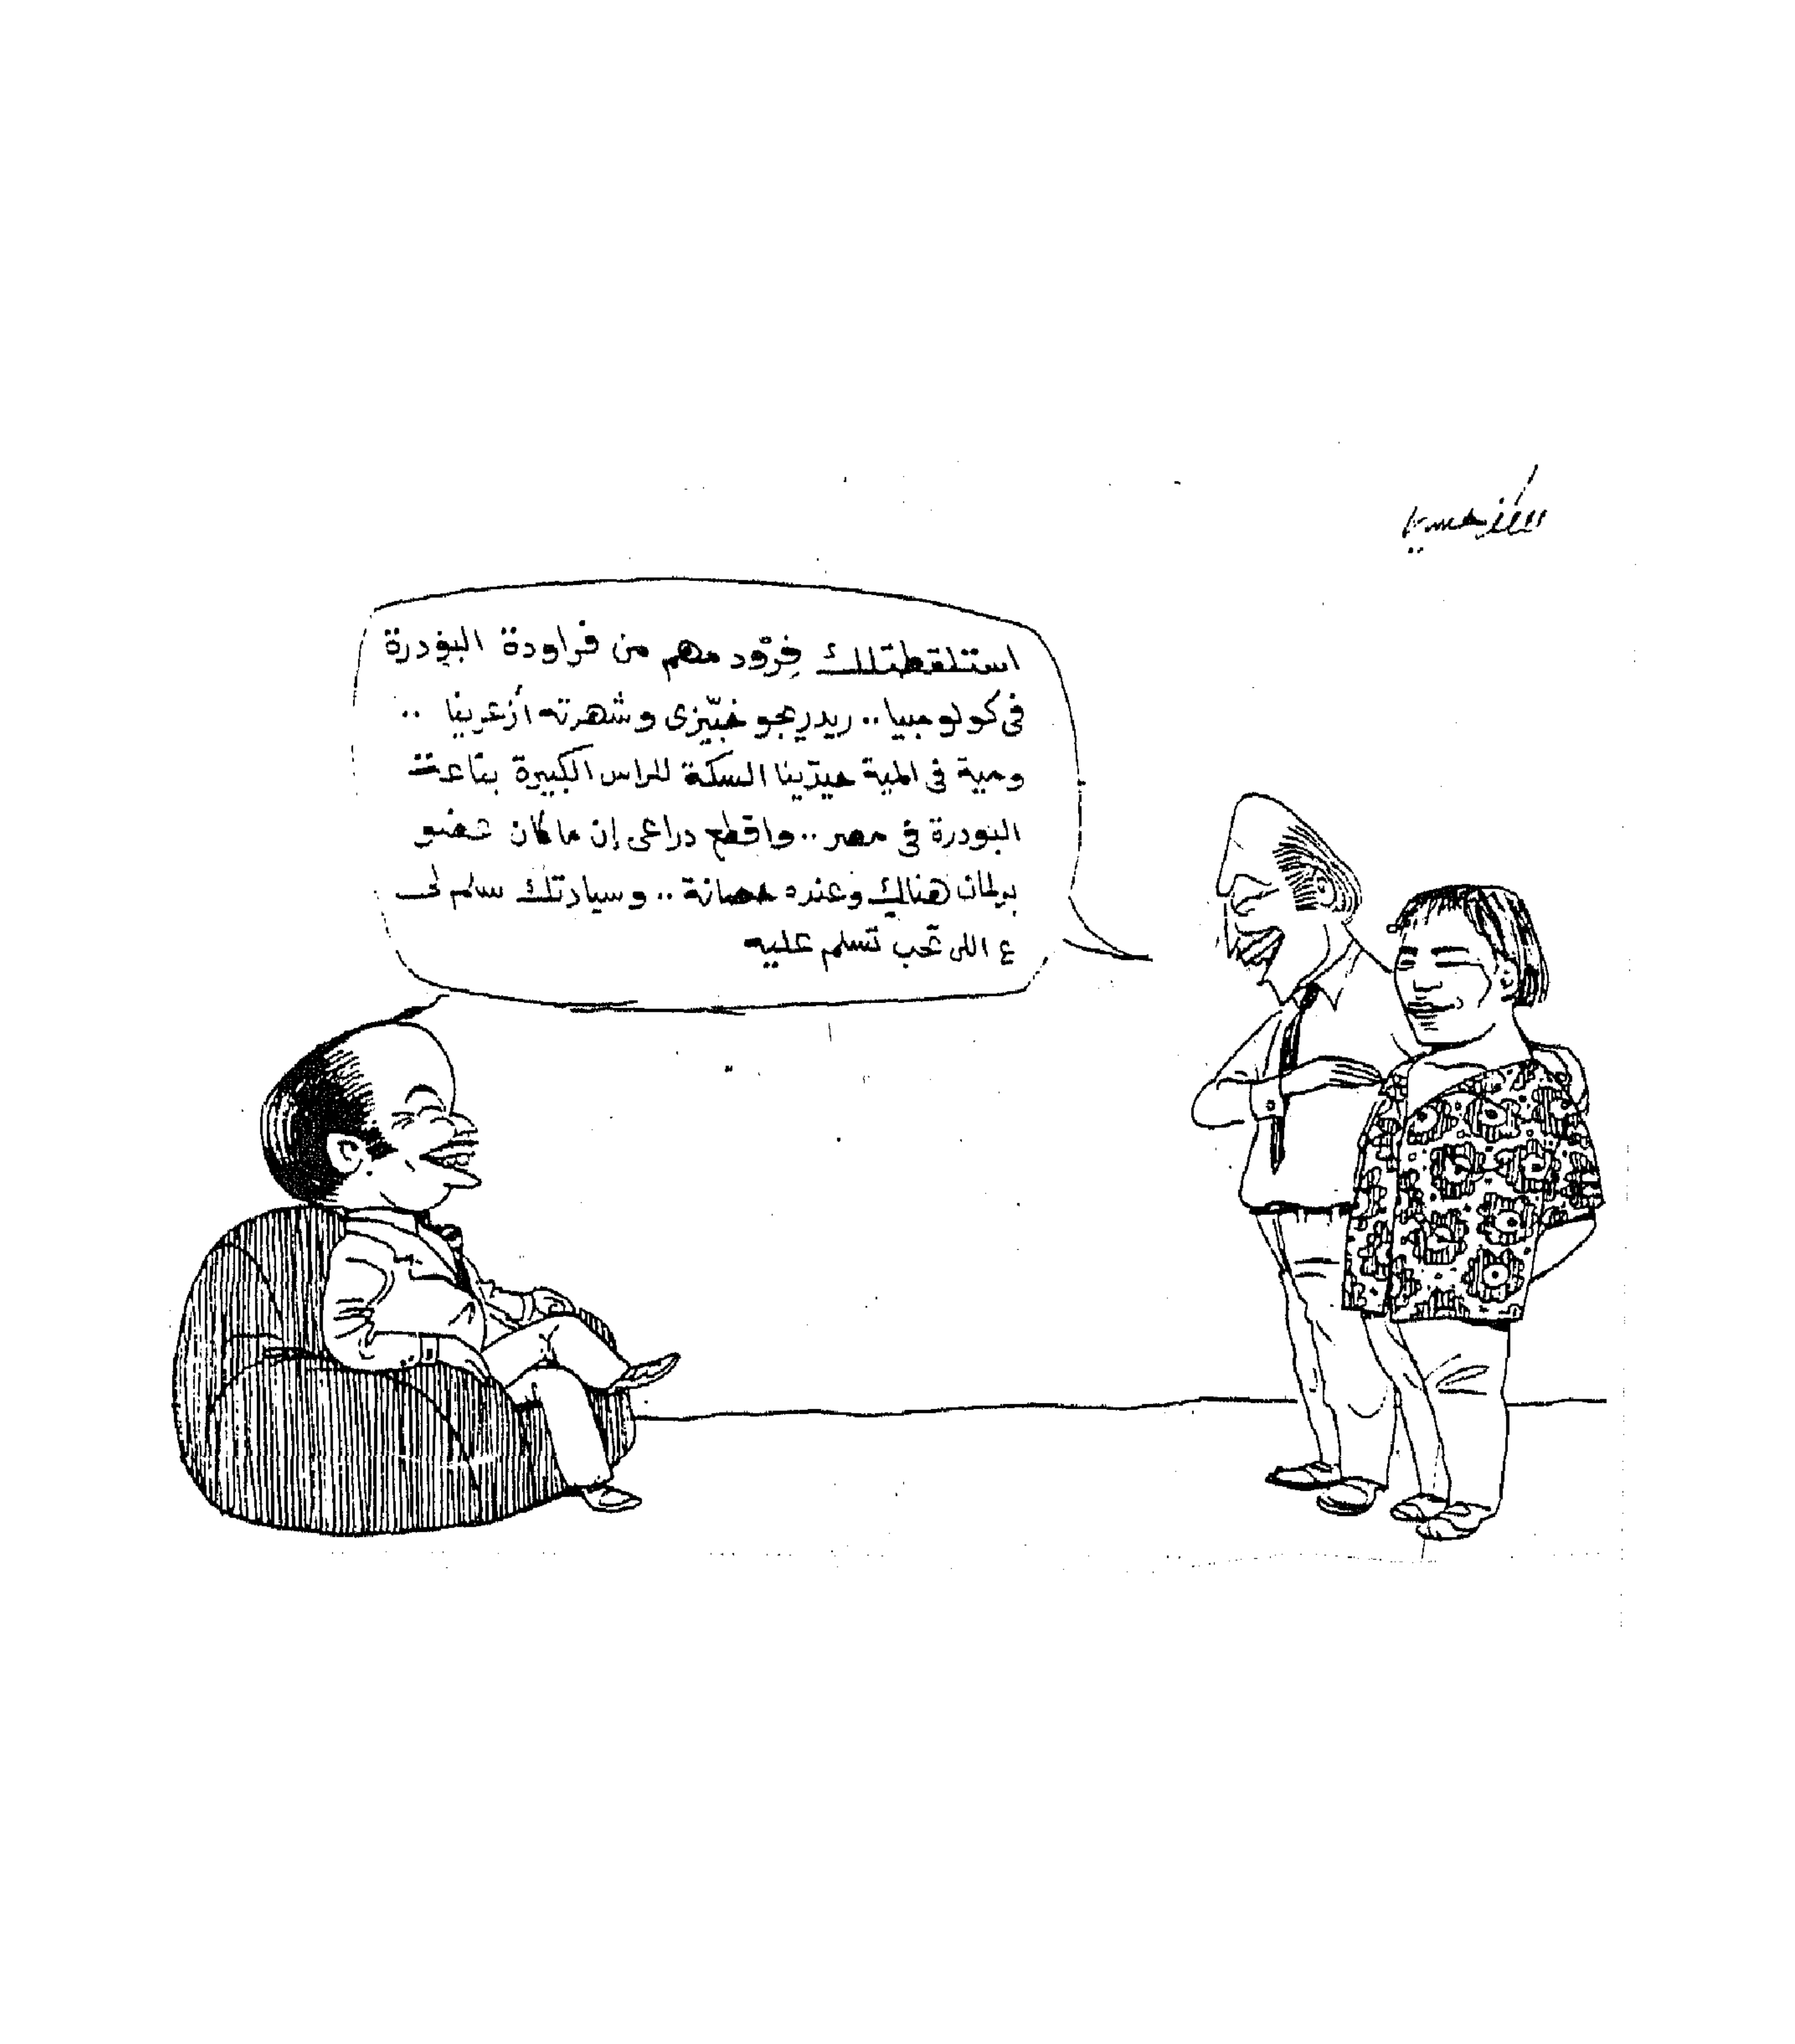 استلقطتلك فرّود مهم من فراودة البودرة
فى كولومبيا .. ريدريجو خبّيزى وشهرته أزعرينا ..
ومية فى المية حيدّينا السكة للراس الكبيرة بتاعت
البودرة فى مصر .. واقطع دراعى إن ما كان عضو
برلمان هناك وعنده حصانة .. وسيادتك سلم لى
ع اللى تحب تسلم عليه
حسين